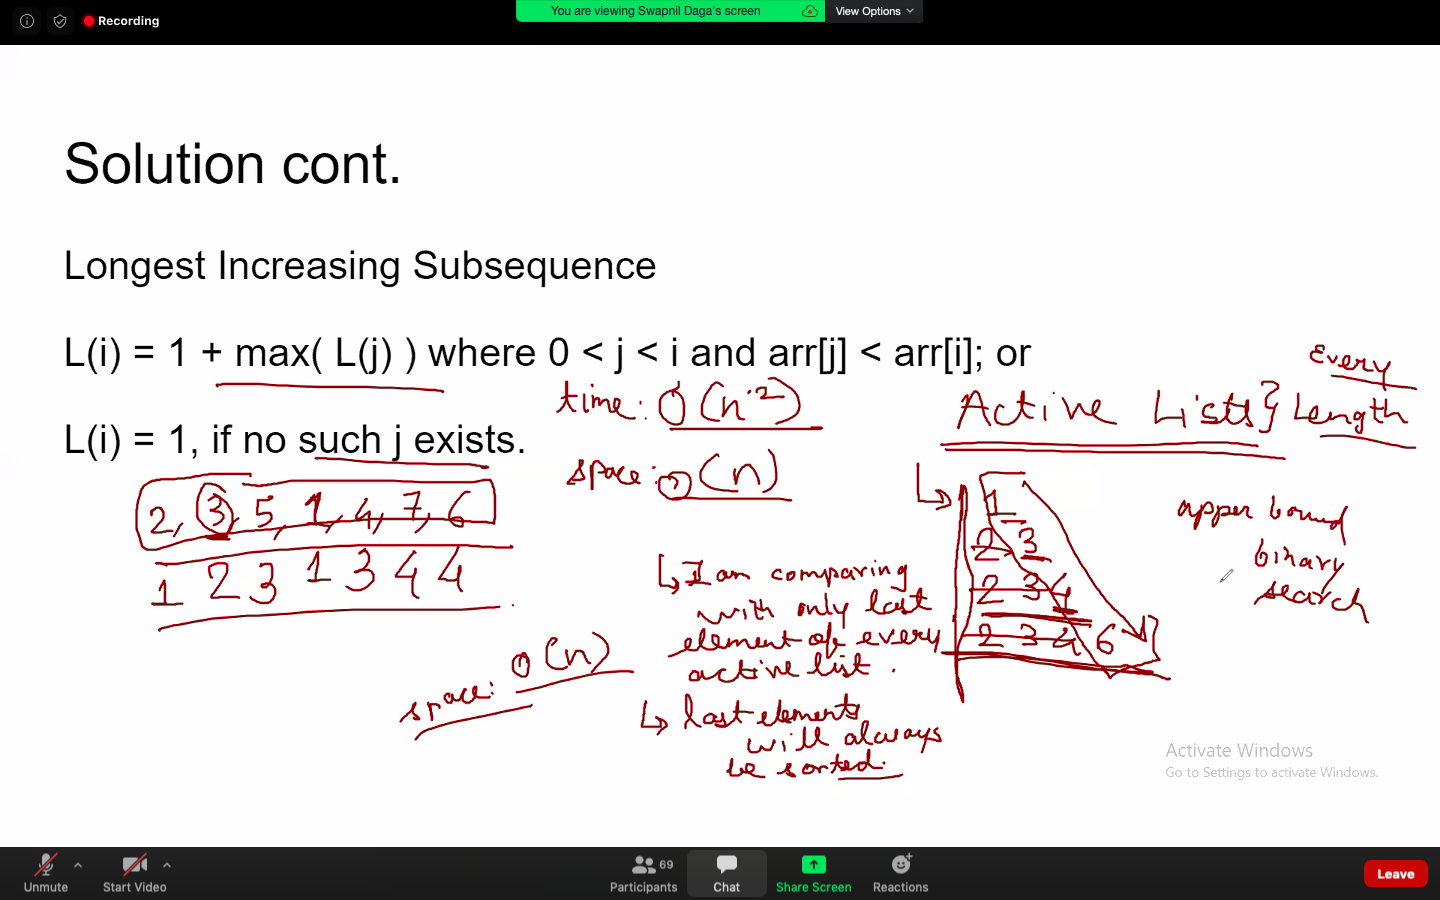 Recording
You are viewing Swapnil Daga's screen
View Options
Solution cont.
Longest Increasing Subsequence
L(i) = 1 + max( L(j) ) where 0 < j < i and arr[j] < arr[i]; or
L(i) = 1, if no such j exists.
time: O(n^2)
space: O(n)
2, 3, 5, 1, 4, 7, 6
1 2 3 1 3 4 4
space: O(n)
I am comparing
with only last
element of every
active list.
last elements
will always
be sorted.
Every
Active Lists} Length
1
2 3
2 3 4
2 3 4 6
upper bound
binary
search
Activate Windows
Go to Settings to activate Windows.
Unmute
Start Video
69
Participants
Chat
Share Screen
Reactions
Leave